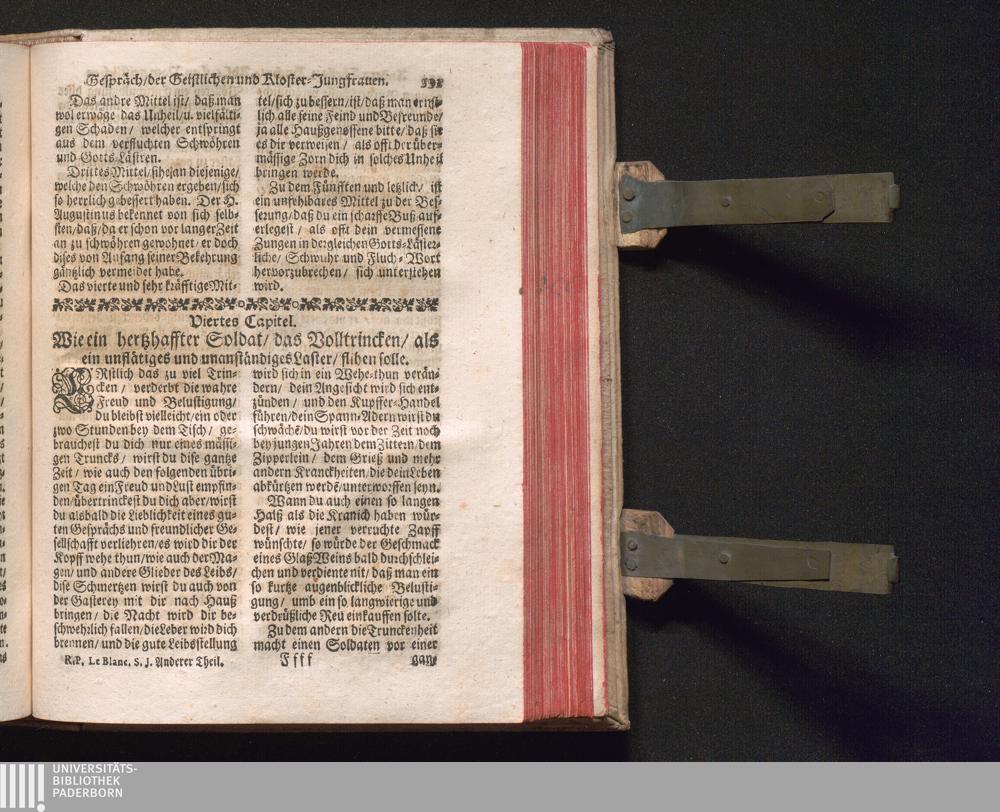 Gespräch/der Geistlichen und Kloster-Jungfrauen. 591
Das andre Mittel ist/ daß man
wol erwäge das Unheil/u. vielfälti-
gen Schaden/ welcher entspringt
aus dem verfluchten Schwöhren
und Gotts Lästren.
Drittes Mittel/ sihe an diejenige/
welche den Schwöhren ergeben/sich
so herrlich gebessert haben. Der H.
Augustinus bekennet von sich selb-
sten/daß/da er schon vor langer Zeit
an zu schwöhren gewohnet/ er doch
dises von Anfang seiner Bekehrung
gäntzlich vermeidet habe.
Das vierte und sehr kräfftige Mit-
tel/sich zu bessern/ist/daß man ernst-
lich alle seine Feind und Befreunde/
ja alle Haußgenossene bitte/daß sie
es dir verweisen/ als offt der über-
mässige Zorn dich in solches Unheil
bringen werde.
Zu dem Fünfften und letzlich/ ist
ein unfehlbares Mittel zu der Bes-
serung/daß du ein scharffe Buß auf-
erlegest/ als offt dein vermessene
Zungen in dergleichen Gotts-Läster-
liche/ Schwuhr und Fluch-Wort
hervorzubrechen/ sich unterstehen
wird.
Viertes Capitel.
Wie ein hertzhaffter Soldat/ das Volltrincken/ als
ein unflätiges und unanständiges Laster/ fliben solle.
ERstlich das zu viel Trin-
cken/ verderbt die wahre
Freud und Belustigung/
du bleibst vielleicht/ein oder
zwo Stunden bey dem Tisch/ ge-
brauchest du dich nur eines mässi-
gen Truncks/ wirst du dise gantze
Zeit/ wie auch den folgenden übri-
gen Tag ein Freud und Lust empfin-
den/übertrinckest du dich aber/wirst
du alsbald die Lieblichkeit eines gu-
ten Gesprächs und freundlicher Ge-
sellschafft verliehren/es wird dir der
Kopff wehe thun/wie auch der Ma-
gen/ und andere Glieder des Leibs/
dise Schmertzen wirst du auch von
der Gasterey mit dir nach Hauß
bringen/ die Nacht wird dir be-
schwehrlich fallen/die Leber wird dich
brennen/ und die gute Leibsstellung
wird sich in ein Wehe-thun verän-
dern/ dein Angesicht wird sich ent-
zünden/ und den Kupffer-Handel
führen/dein Spann-Adern wirst du
schwächē/du wirst vor der Zeit noch
bey jungen Jahren dem Zittern/dem
Zipperlein/ dem Grieß und mehr
andern Kranckheiten/die dein Leben
abkürtzen werdē/unterworffen seyn.
Wann du auch einen so langen
Halß als die Kranich haben wür-
dest/ wie jener verruchte Zapff
wünschte/ so würde der Geschmack
eines Glaß Weins bald durchschlei-
chen und verdiente nit/ daß man ein
so kurtze augenblickliche Belusti-
gung/ umb ein so langwierige und
verdrüßliche Reu einkauffen solte.
Zu dem andern die Trunckenheit
macht einen Soldaten vor einer
R. P. Le Blanc, S. J. Anderer Theil. Ffff gan-
UNIVERSITÄTS-
BIBLIOTHEK
PADERBORN